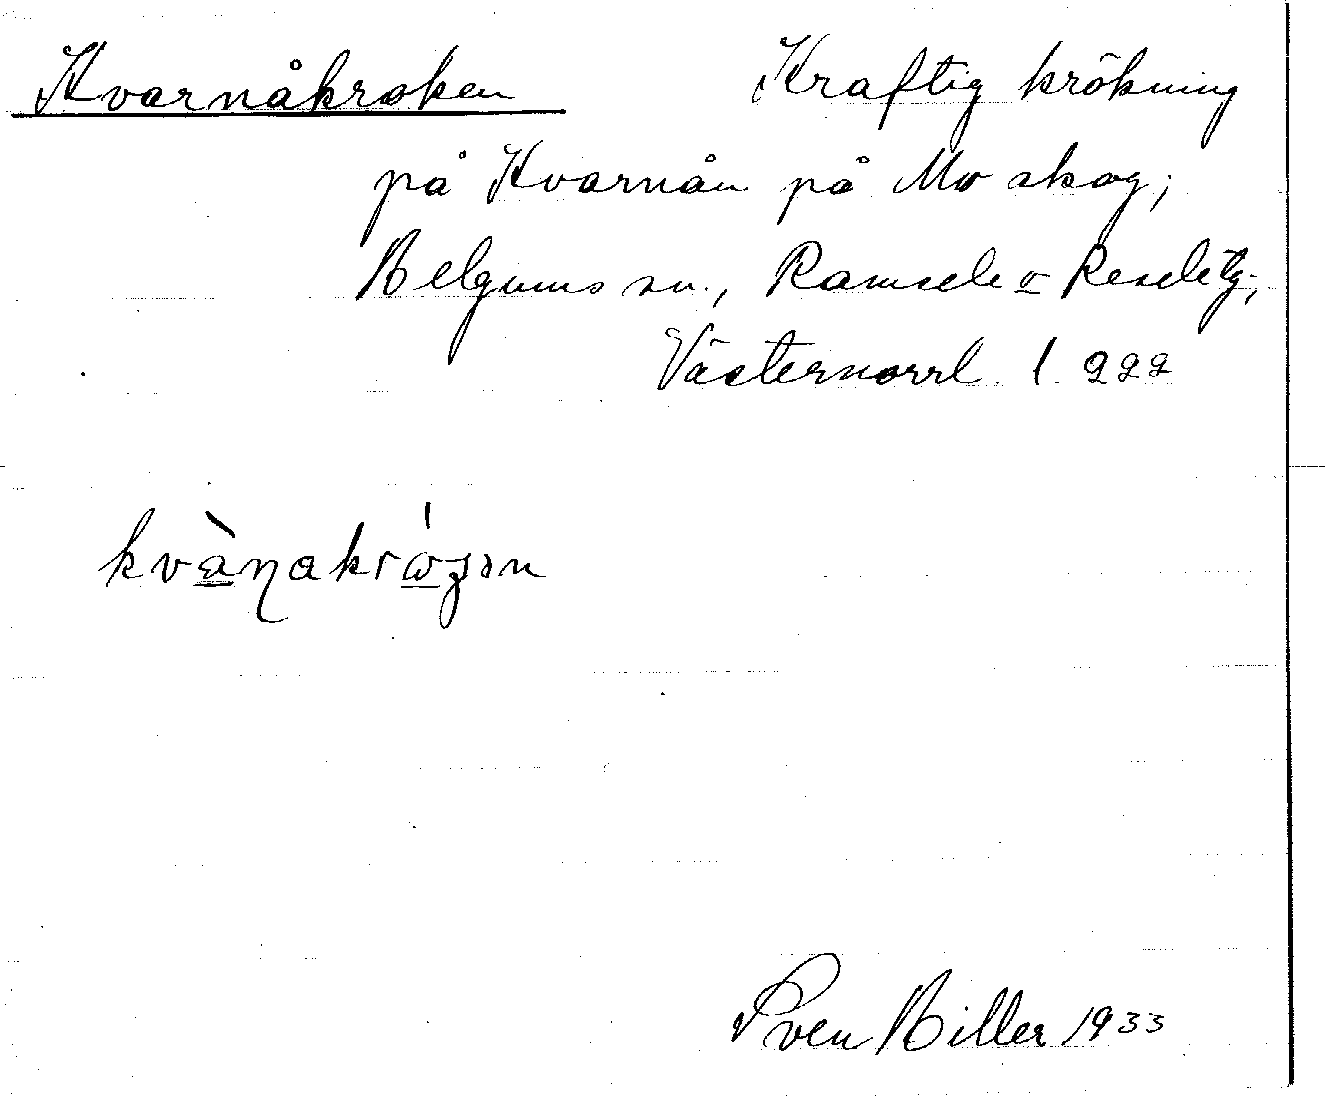 Kvarnåkroken Kraftig krökning
på Kvarnån på Mo skog;
Helgums sn., Ramsele o Resele tg;
Västernorrl l
Sven Hiller 1933